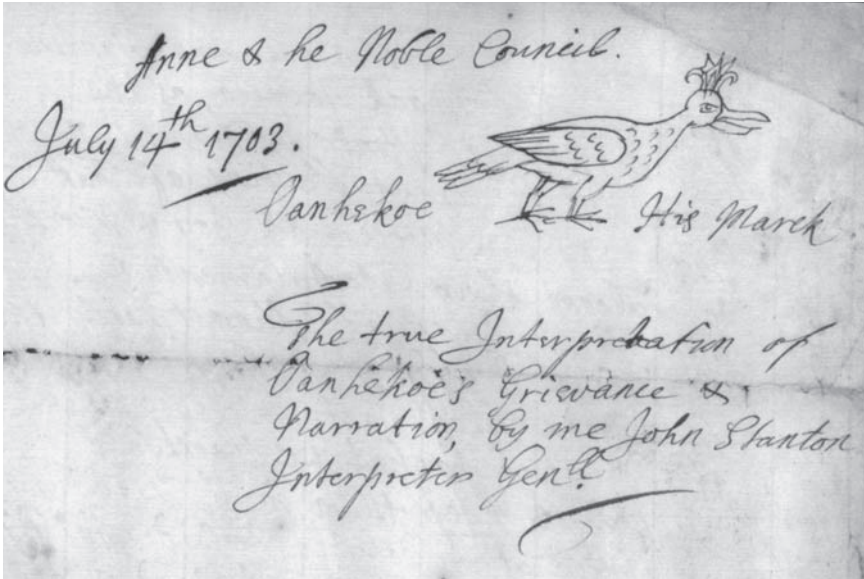 Anne & he Noble Council.
July 14th 1703.
Oanhekoe His Marck
The true Interpretation of
Oanhekoe's Grievance &
Narration, by me John Stanton
Interpreter Genll.